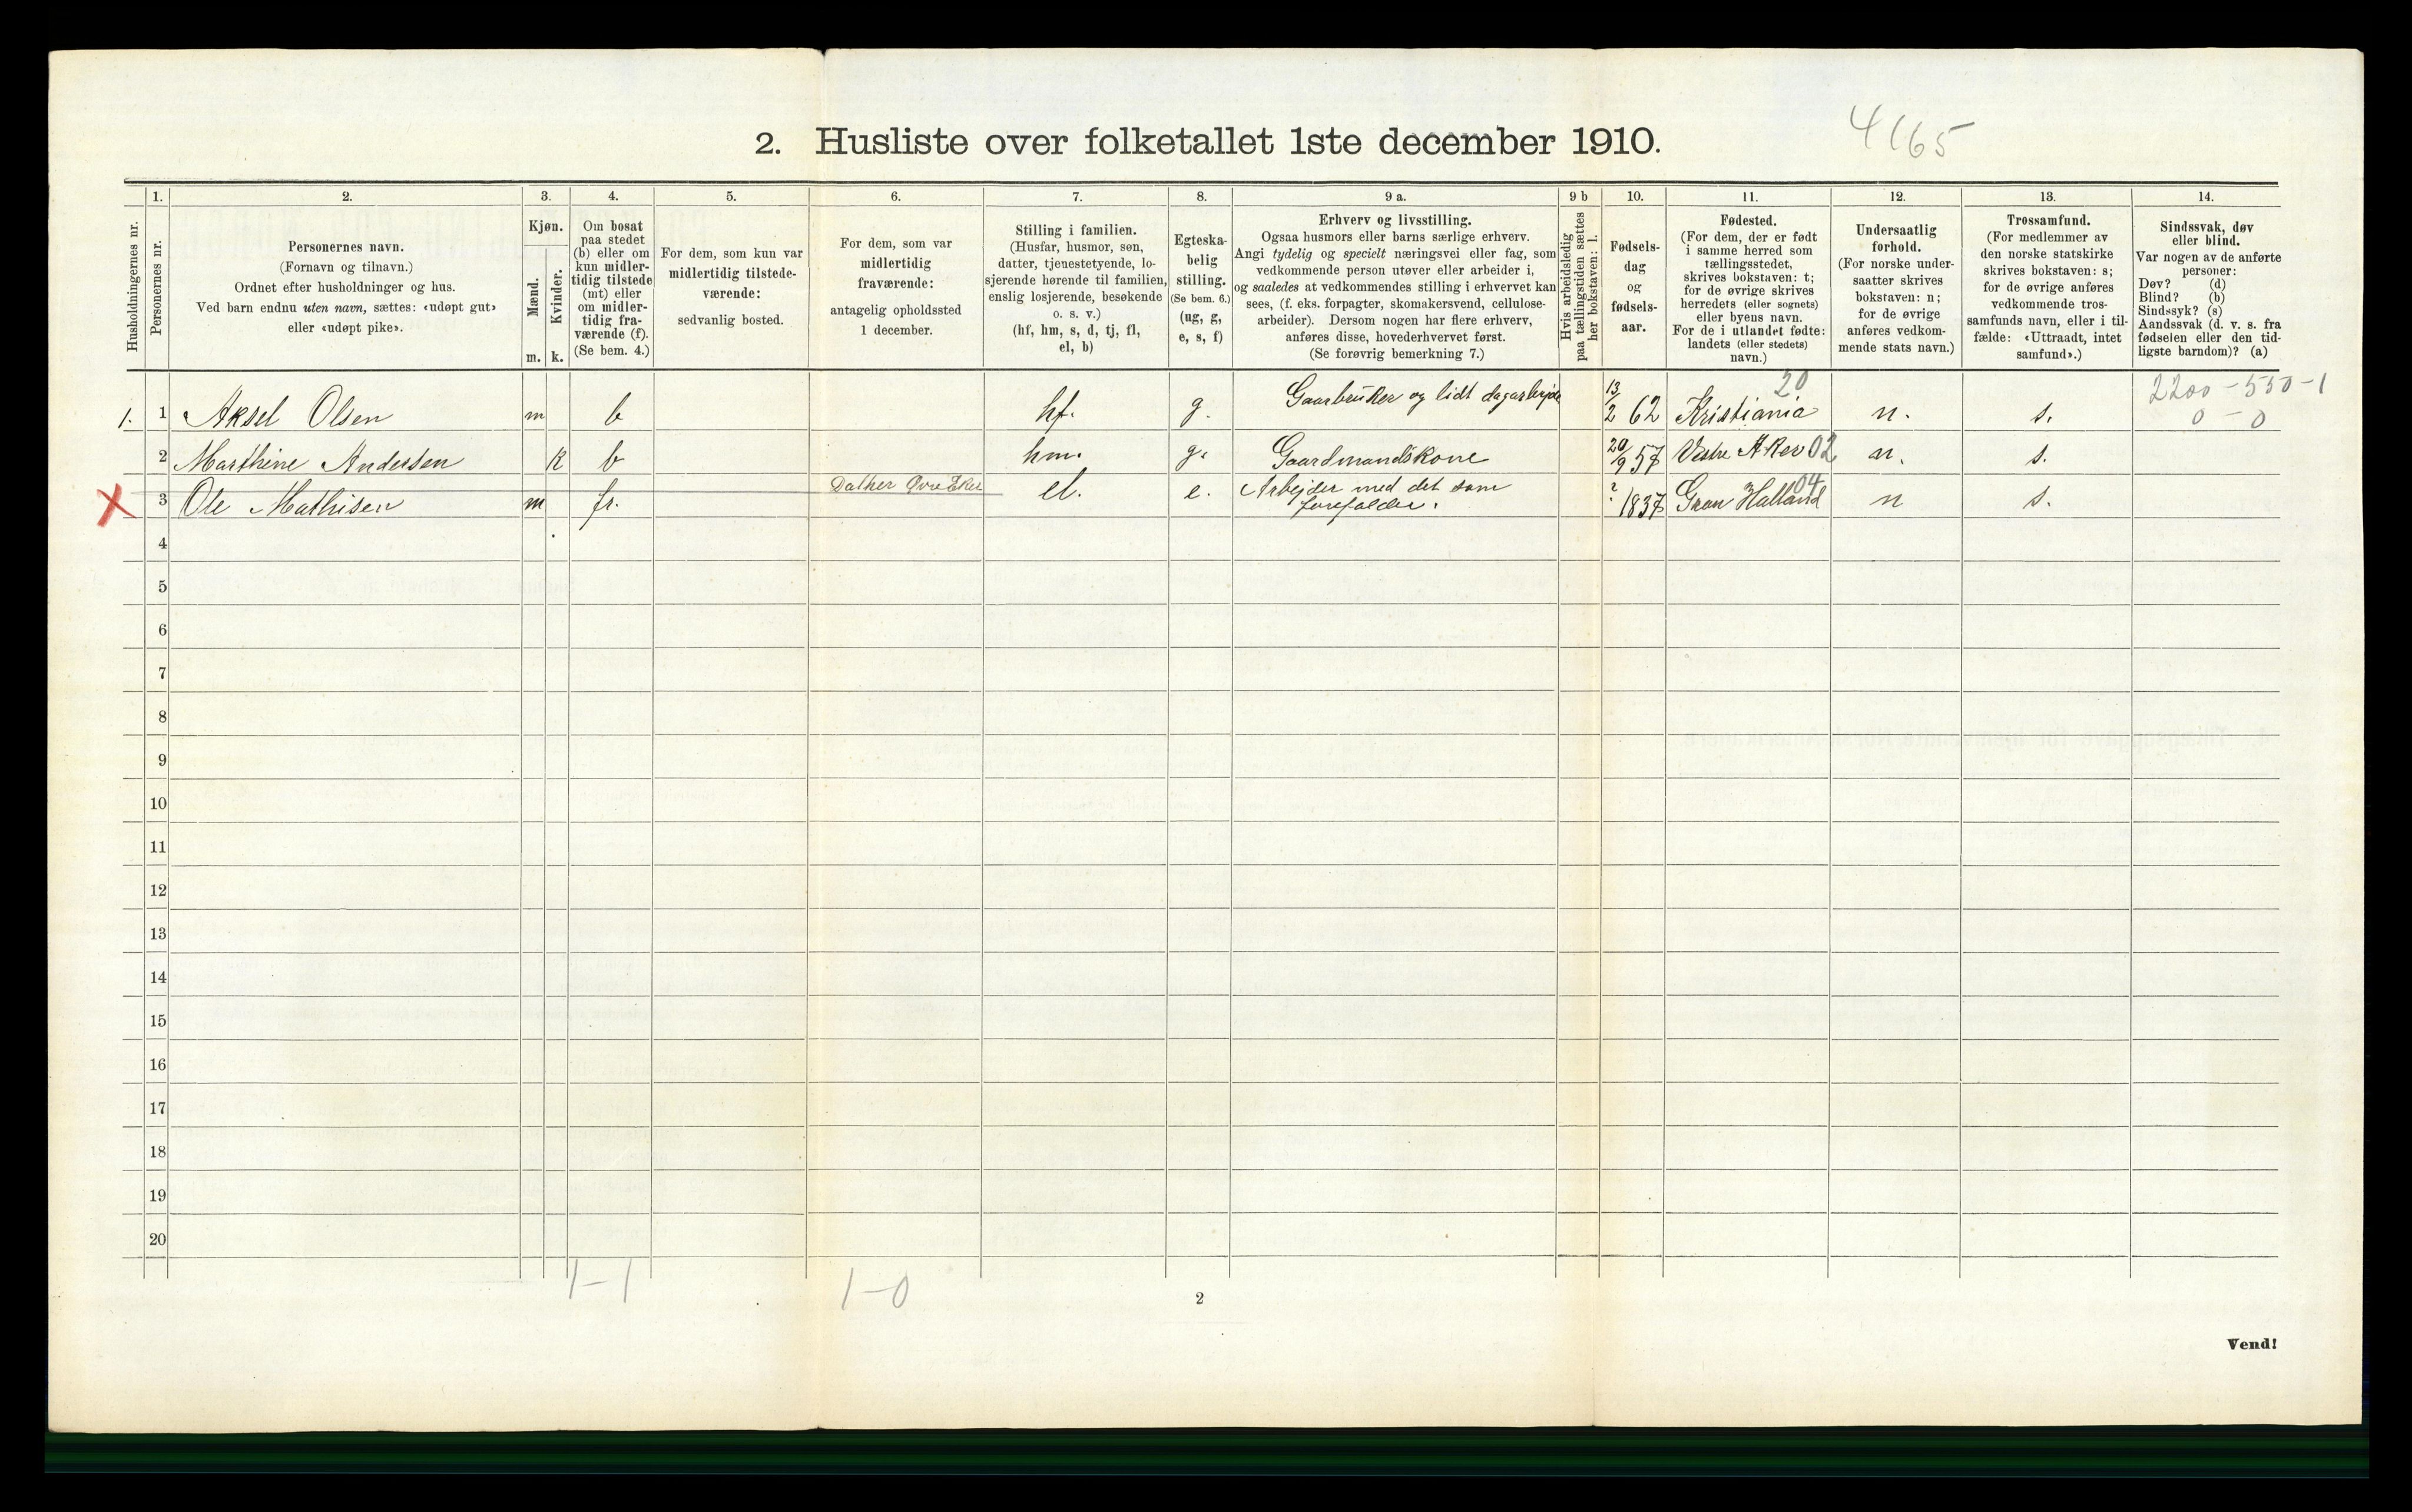 2. Husliste over folketallet 1ste december 1910.
4165
Husholdningernes nr.
1.
Personernes nr.
2.
Personernes navn.
(Fornavn og tilnavn.)
Ordnet efter husholdninger og hus.
Ved barn endnu uten navn, sættes: «udøpt gut»
eller «udøpt pike».
3.
Kjøn.
Mænd.
Kvinder.
m. k.
4.
Om bosat
paa stedet
(b) eller om
kun midler-
tidig tilstede
(mt) eller
om midler-
tidig fra-
værende (f).
(Se bem. 4.)
5.
For dem, som kun var
midlertidig tilstede-
værende:
sedvanlig bosted.
6.
For dem, som var
midlertidig
fraværende:
antagelig opholdssted
1 december.
7.
Stilling i familien.
(Husfar, husmor, søn,
datter, tjenestetyende, lo-
sjerende hørende til familien,
enslig losjerende, besøkende
o. s. v.)
(hf, hm, s, d, tj, fl,
el, b)
8.
Egteska-
belig
stilling.
(Se bem. 6.)
(ug, g,
e, s, f)
9 a.
Erhverv og livsstilling.
Ogsaa husmors eller barns særlige erhverv.
Angi tydelig og specielt næringsvei eller fag, som
vedkommende person utøver eller arbeider i,
og saaledes at vedkommendes stilling i erhvervet kan
sees, (f. eks. forpagter, skomakersvend, cellulose-
arbeider). Dersom nogen har flere erhverv,
anføres disse, hovederhvervet først.
(Se forøvrig bemerkning 7.)
9 b
Hvis arbeidsledig
paa tællingstiden sættes
her bokstaven: l.
10.
Fødsels-
dag
og
fødsels-
aar.
11.
Fødested.
(For dem, der er født
i samme herred som
tællingsstedet,
skrives bokstaven: t;
for de øvrige skrives
herredets (eller sognets)
eller byens navn.
For de i utlandet fødte:
landets (eller stedets)
navn.)
12.
Undersaatlig
forhold.
(For norske under-
saatter skrives
bokstaven: n;
for de øvrige
anføres vedkom-
mende stats navn.)
13.
Trossamfund.
(For medlemmer av
den norske statskirke
skrives bokstaven: s;
for de øvrige anføres
vedkommende tros-
samfunds navn, eller i til-
fælde: «Uttraadt, intet
samfund».)
14.
Sindssvak, døv
eller blind.
Var nogen av de anførte
personer:
Døv? (d)
Blind? (b)
Sindssyk? (s)
Aandssvak (d. v. s. fra
fødselen eller den tid-
ligste barndom)? (a)
20
2200 - 550 - 1
0 - 0
1. 1 Aksel Olsen m b hf. g. Gaarbruker og lidt dagarbejde 13/2 62 Kristiania n. s.
2 Marthine Andersen k b hm. g. Gaardmandskone 20/9 57 Vestre Aker 02 n. s.
04
X 3 Ole Mathisen m fr. Øvre Eker el. e. Arbejder med det som
forefalder. ? 1837 Gran n s.
4
5
6
7
8
9
10
11
12
13
14
15
16
17
18
19
20
1-1 1-0
2
Vend!